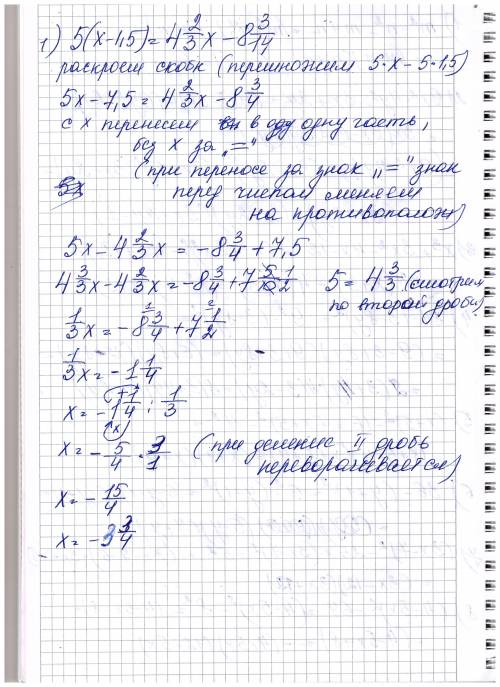 1) 5(x-1,5) = 4 2/3 x - 8 3/14
раскроем скобк (перемножим 5·x - 5·1,5)
5x - 7,5 = 4 2/3 x - 8 3/4
с x перенесем в одну часть,
без x за „="
(при переносе за знак „=" знак
перед числом меняем
на противополож)
5x - 4 2/3 x = -8 3/4 + 7,5
4 3/3 x - 4 2/3 x = -8 3/4 + 7 5/10 1/2 5 = 4 3/3 (смотрим
по второй дроби)
1/3 x = -8 3/4 + 7 1/2
1/3 x = -1 1/4
x = -1 1/4 : 1/3
x = -5/4 · 3/1 (при деление II дробь
переворачивается)
x = -15/4
x = -3 3/4